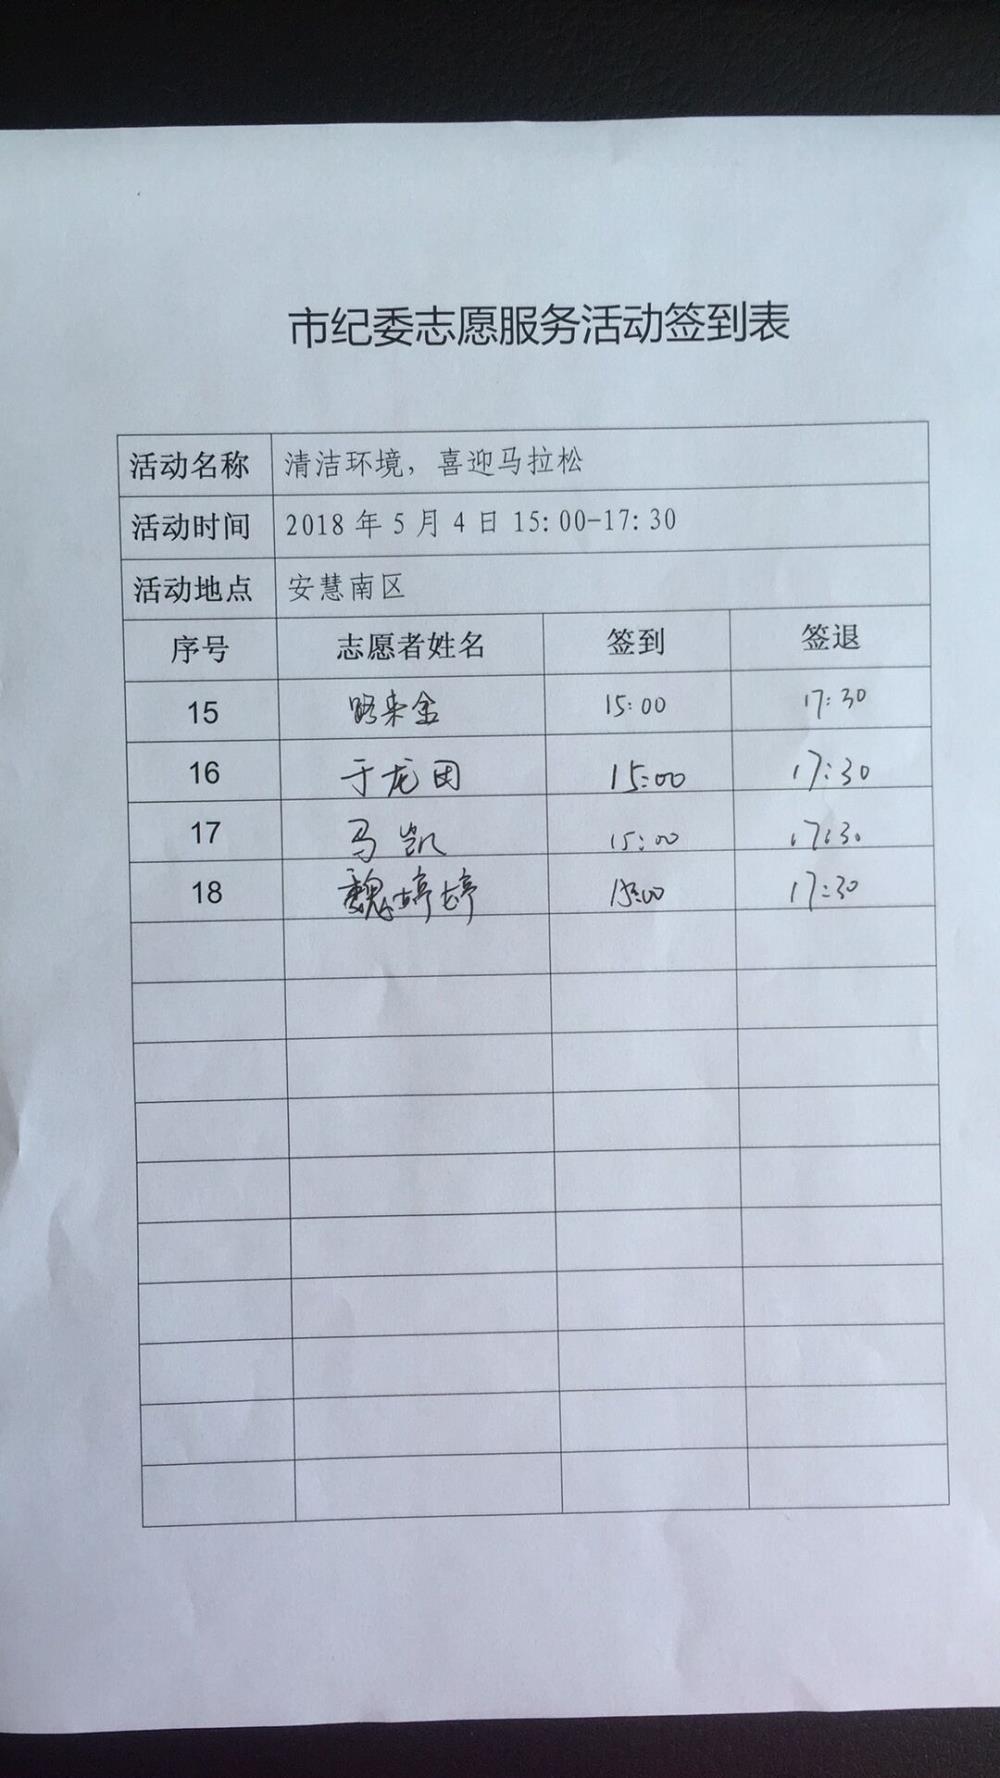 市纪委志愿服务活动签到表
活动名称 清洁环境，喜迎马拉松
活动时间 2018 年 5 月 4 日 15:00-17:30
活动地点 安慧南区
序号 志愿者姓名 签到 签退
15 来金 15:00 17:30
16 于龙团 15:00 17:30
17 马凯 15:00 17:30
18 魏婷婷 15:00 17:30